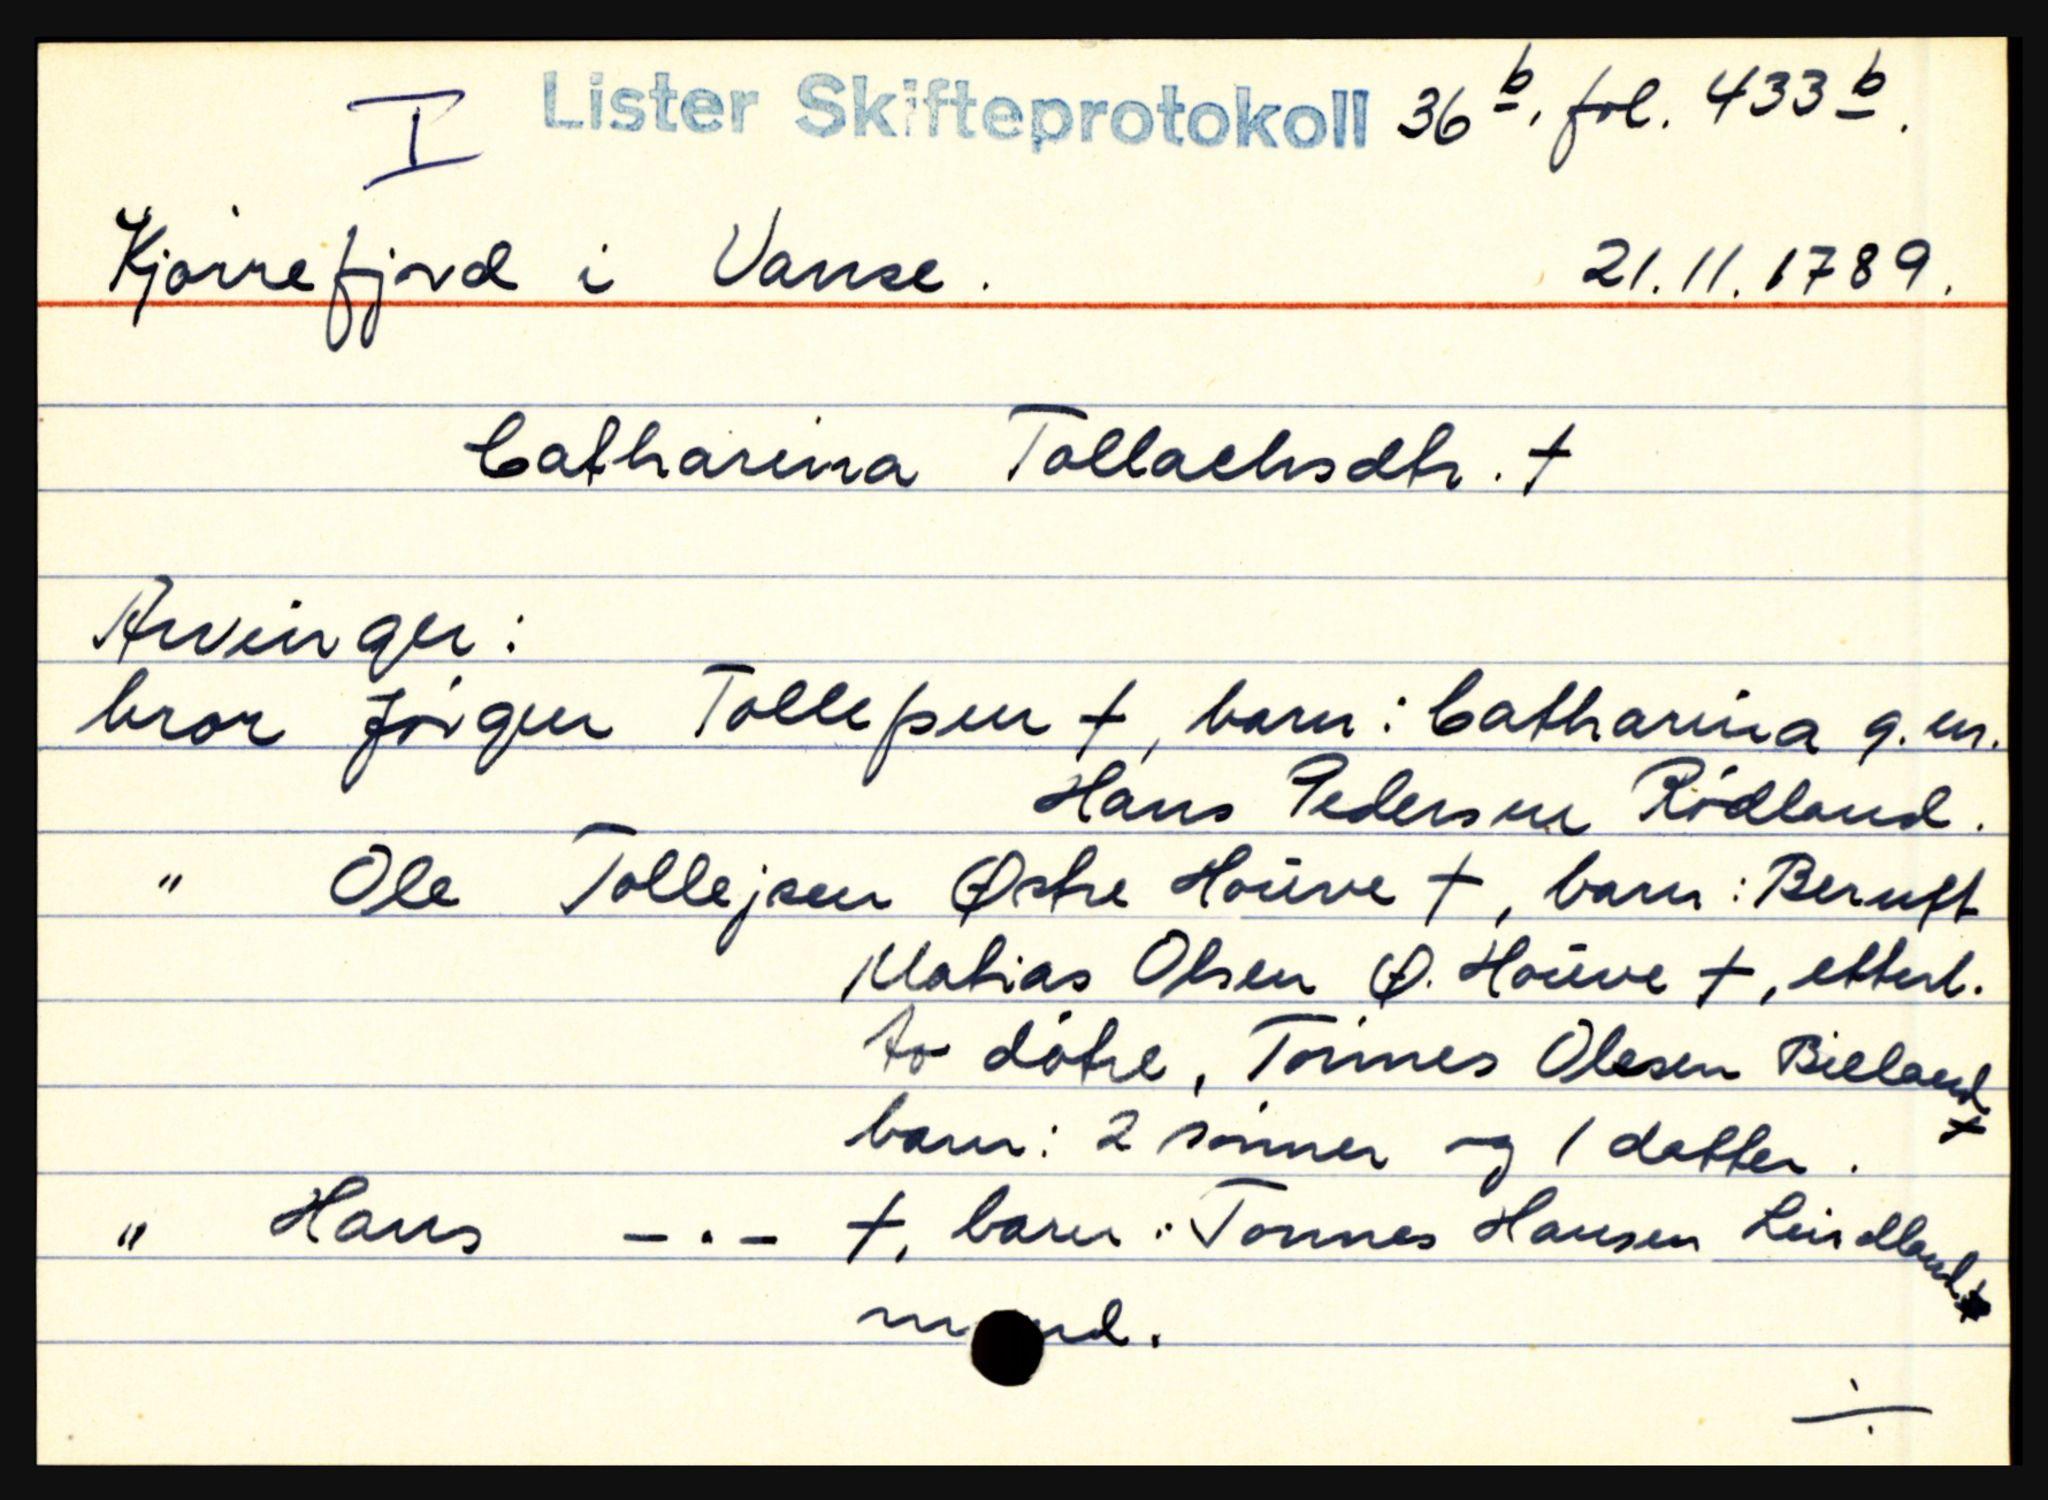 I Lister Skifteprotokoll 36 b, fol. 433 b.
Kjørrefjord i Vanse. 21.11.1789.
Catharina Tollachsdtr. †
Arvinger:
bror Jørgen Tollefsen †, barn: Catharina g.m.
Hans Pedersen Rødland.
" Ole Tollejsen Østre Hoüve †, barn: Beruft
Matias Olsen Ø. Hoüve †, etterl.
to døtre, Tønnes Olesen Bieland †
barn: 2 sønner og 1 datter.
" Hans — . — †, barn: Tønnes Hansen Leirdland
÷